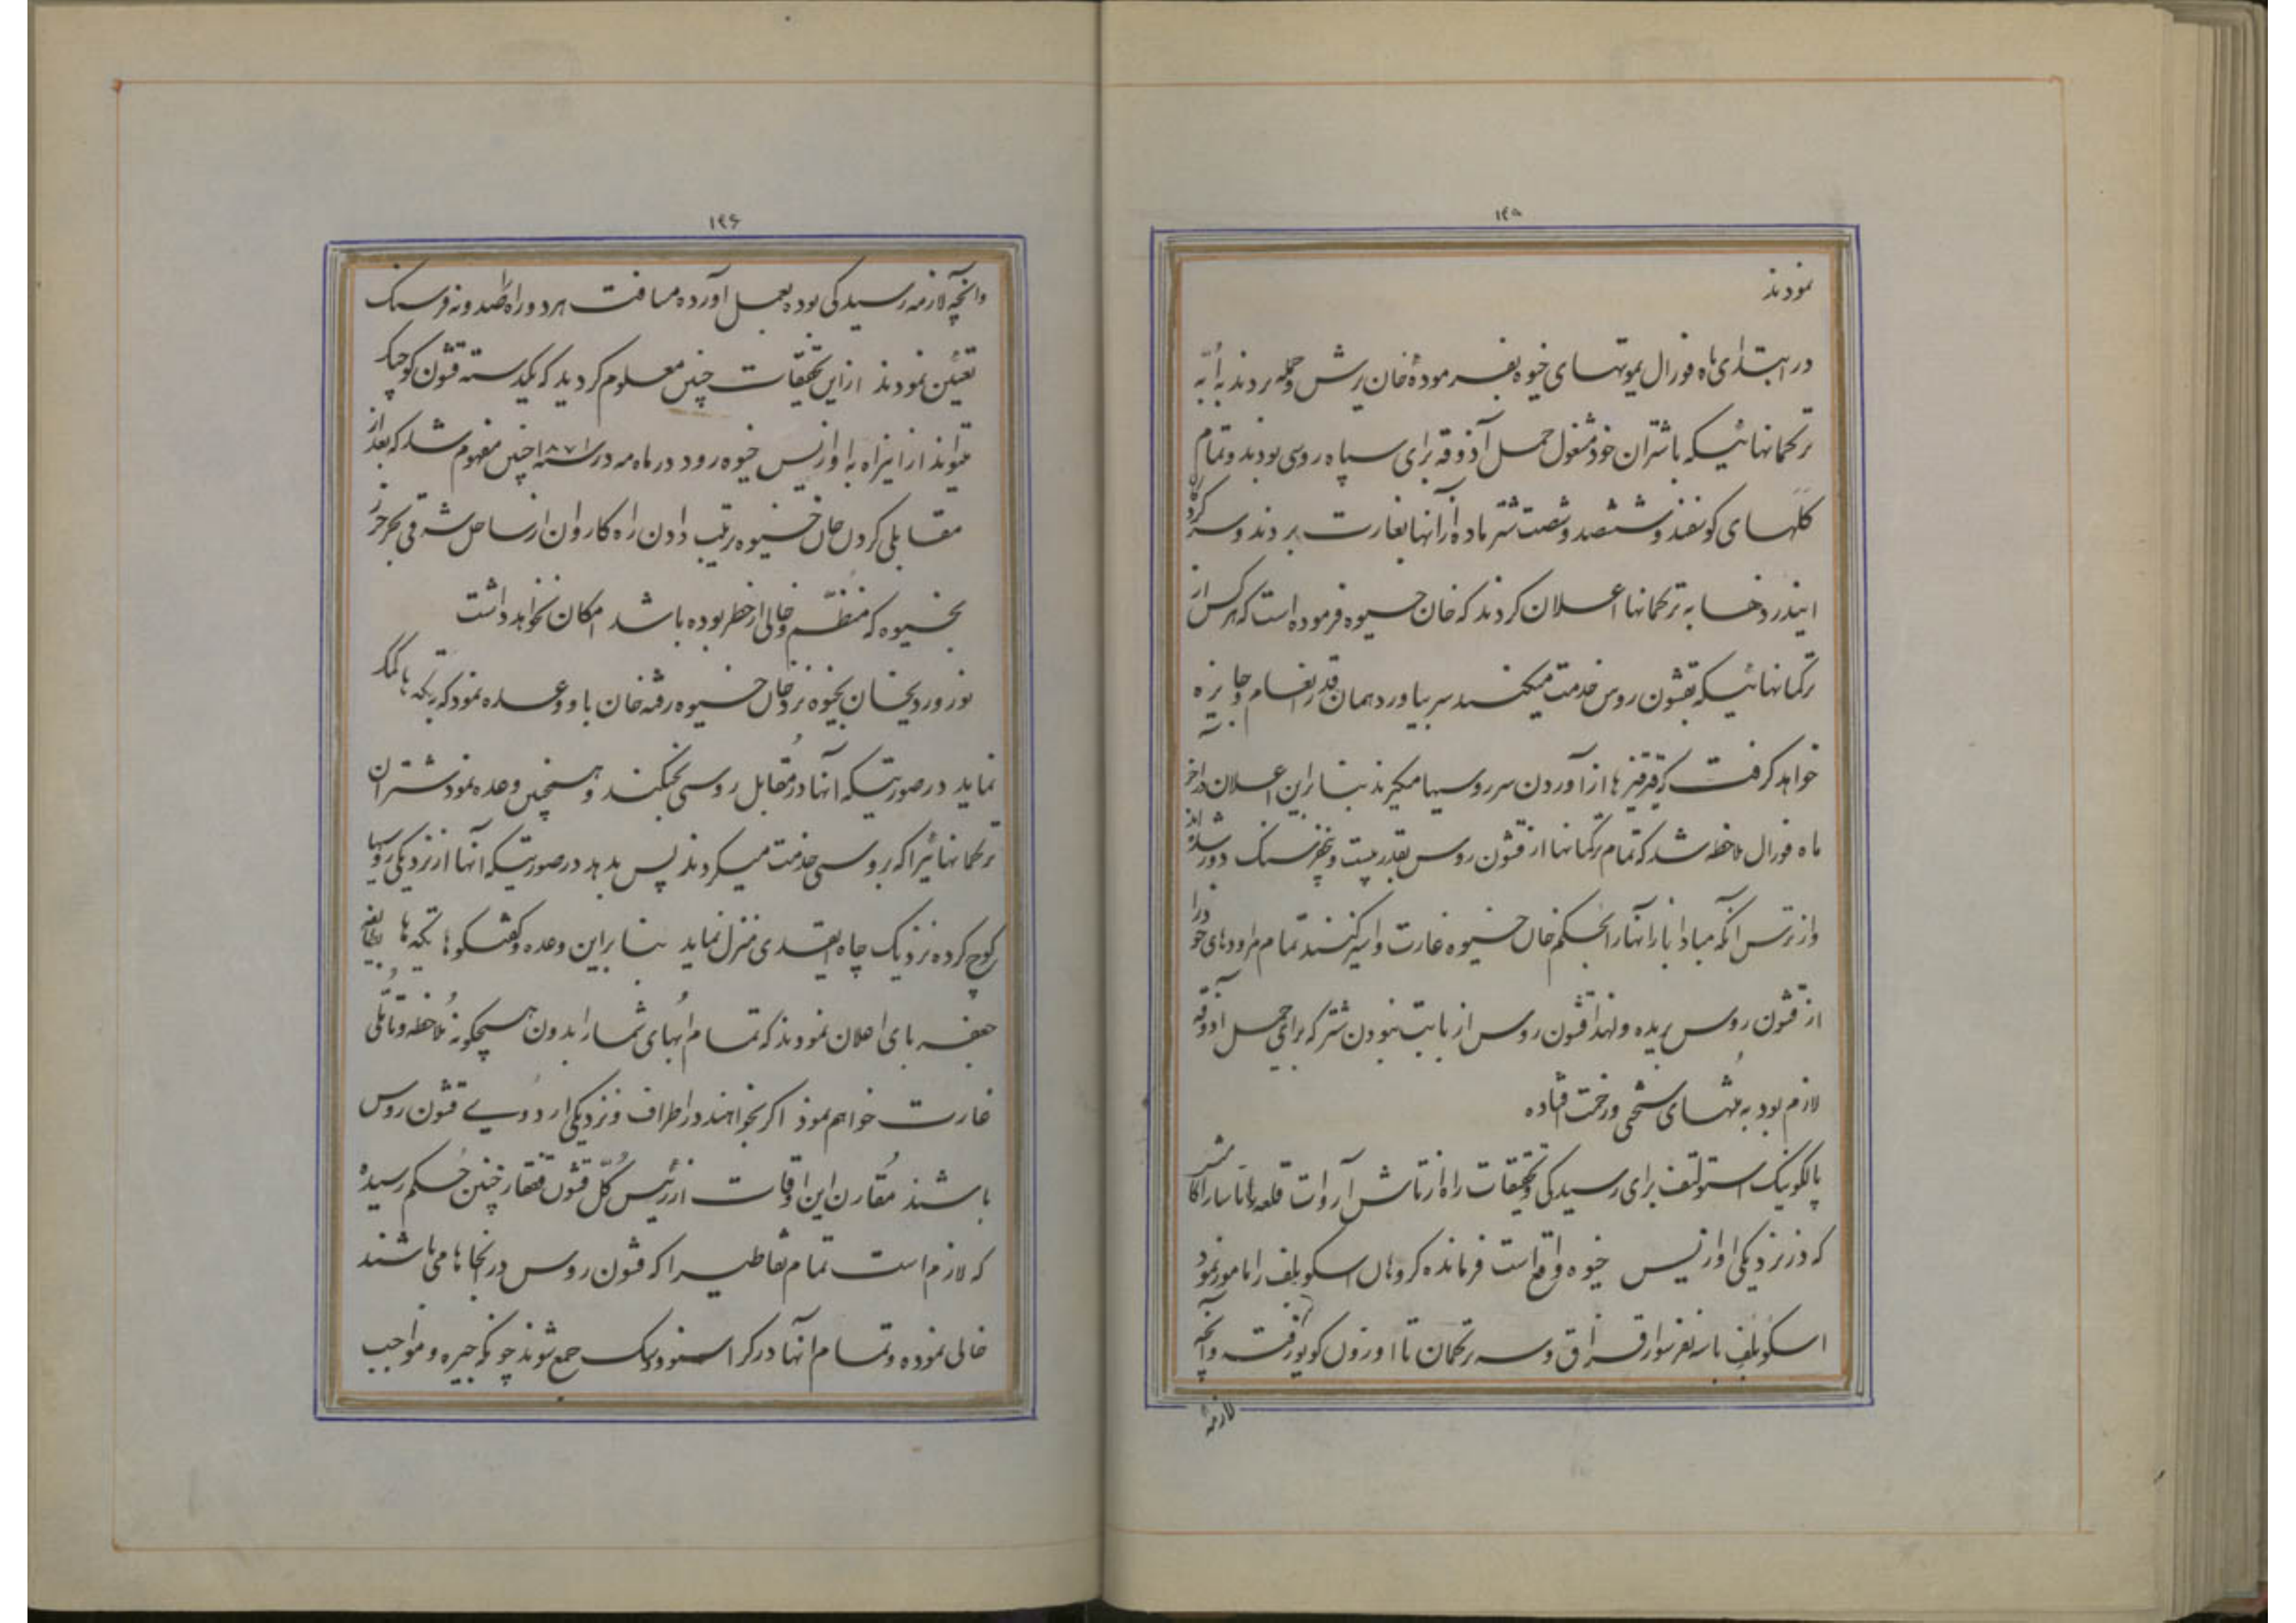 ۱۴۵
نمودند
در ابتدای ماه فورال یموتهای خیوه بفرمودهٔ خان یرش و حمله بردند به اُبّه
ترکمانهائیکه باشتران خود مشغول حمل آذوقه برای سپاه روسی بودند و تمام
گلّهای گوسفند و ششصد و شصت شتر ماده از آنها بغارت بردند و سرکرده
ایندزدها به ترکمانها اعلان کردند که خان خیوه فرموده است که هرکس از
ترکمانهائیکه بقشون روس خدمت میکنند سر بیاورد همان قدر انعام و جایزه
خواهد گرفت که قرقیزها از آوردن سر روسیها میگیرند بنابراین اعلان در آخر
ماه فورال ملاحظه شد که تمام ترکمانها از قشون روس بقدر بیست و پنج فرسنگ دور شده‌اند
و از ترس آنکه مبادا باز آنها را بحکم خان خیوه غارت و اسیر کنند تمام مراوده‌های خود را
از قشون روس بریده ولهذا قشون روس از بابت نبودن شتر که برای حمل آذوقه
لازم بود به منتهای سختی و زحمت افتاده
پالکونیک استولتف برای رسیدگی و تحقیقات راه از تاش آروات قلعه الی چاه ساراکامش
که در نزدیکی اوازیس خیوه واقع است فرمانده کروهان اسکوبلف را مامور نمود
اسکوبلف با سه نفر سوار قزاق و سه ترکمان تا اوزون کویو رفت و آنچه
لازمهٔ
۱۴۶
و انچه لازمه رسیدگی بوده بعمل آورده مسافت هر دو راه را صد و نه فرسنگ
تعیین نمودند از این تحقیقات چنین معلوم گردید که یکدسته قشون کوچک
میتواند از اینراه به اوازیس خیوه رود در ماه مه در سنه ۱۸۷۱ چنین مفهوم شد که بعد از
مقابلی کردن خان خیوه ترتیب دادن راه کاروان از ساحل شرقی بحر خزر
بخیوه که منظّم و خالی از خطر بوده باشد امکان نخواهد داشت
نوروردیخان بخیوه نزد خان خیوه رفته خان باو وعده نمود که بتکه ها کمک
نماید در صورتیکه آنها در مُقابل روسی بجنگند و همچنین وعده نمود شتران
ترکمانهائیرا که بروسی خدمت میکردند پس بدهد در صورتیکه آنها از نزدیکی روسیها
کوچ کرده نزدیک چاه ایقدی منزل نماید بنابراین وعده و گفتگوها تکه‌ها بطایفه
جعفربای اعلان نمودند که تمام اُبهای شما را بدون هیچگونه مُلاحظه و تأمّلی
غارت خواهم نمود اگر بخواهند در اطراف و نزدیکی اردوی قشون روس
باشند مُقارن این اوقات از رئیس کُلّ قشون قفقاز چنین حُکم رسیده
که لازم است تمام نقاطیرا که قشون روس در آنجاها می‌باشند
خالی نموده و تمام آنها در کراسنوودسک جمع شوند چونکه جیره و مواجب